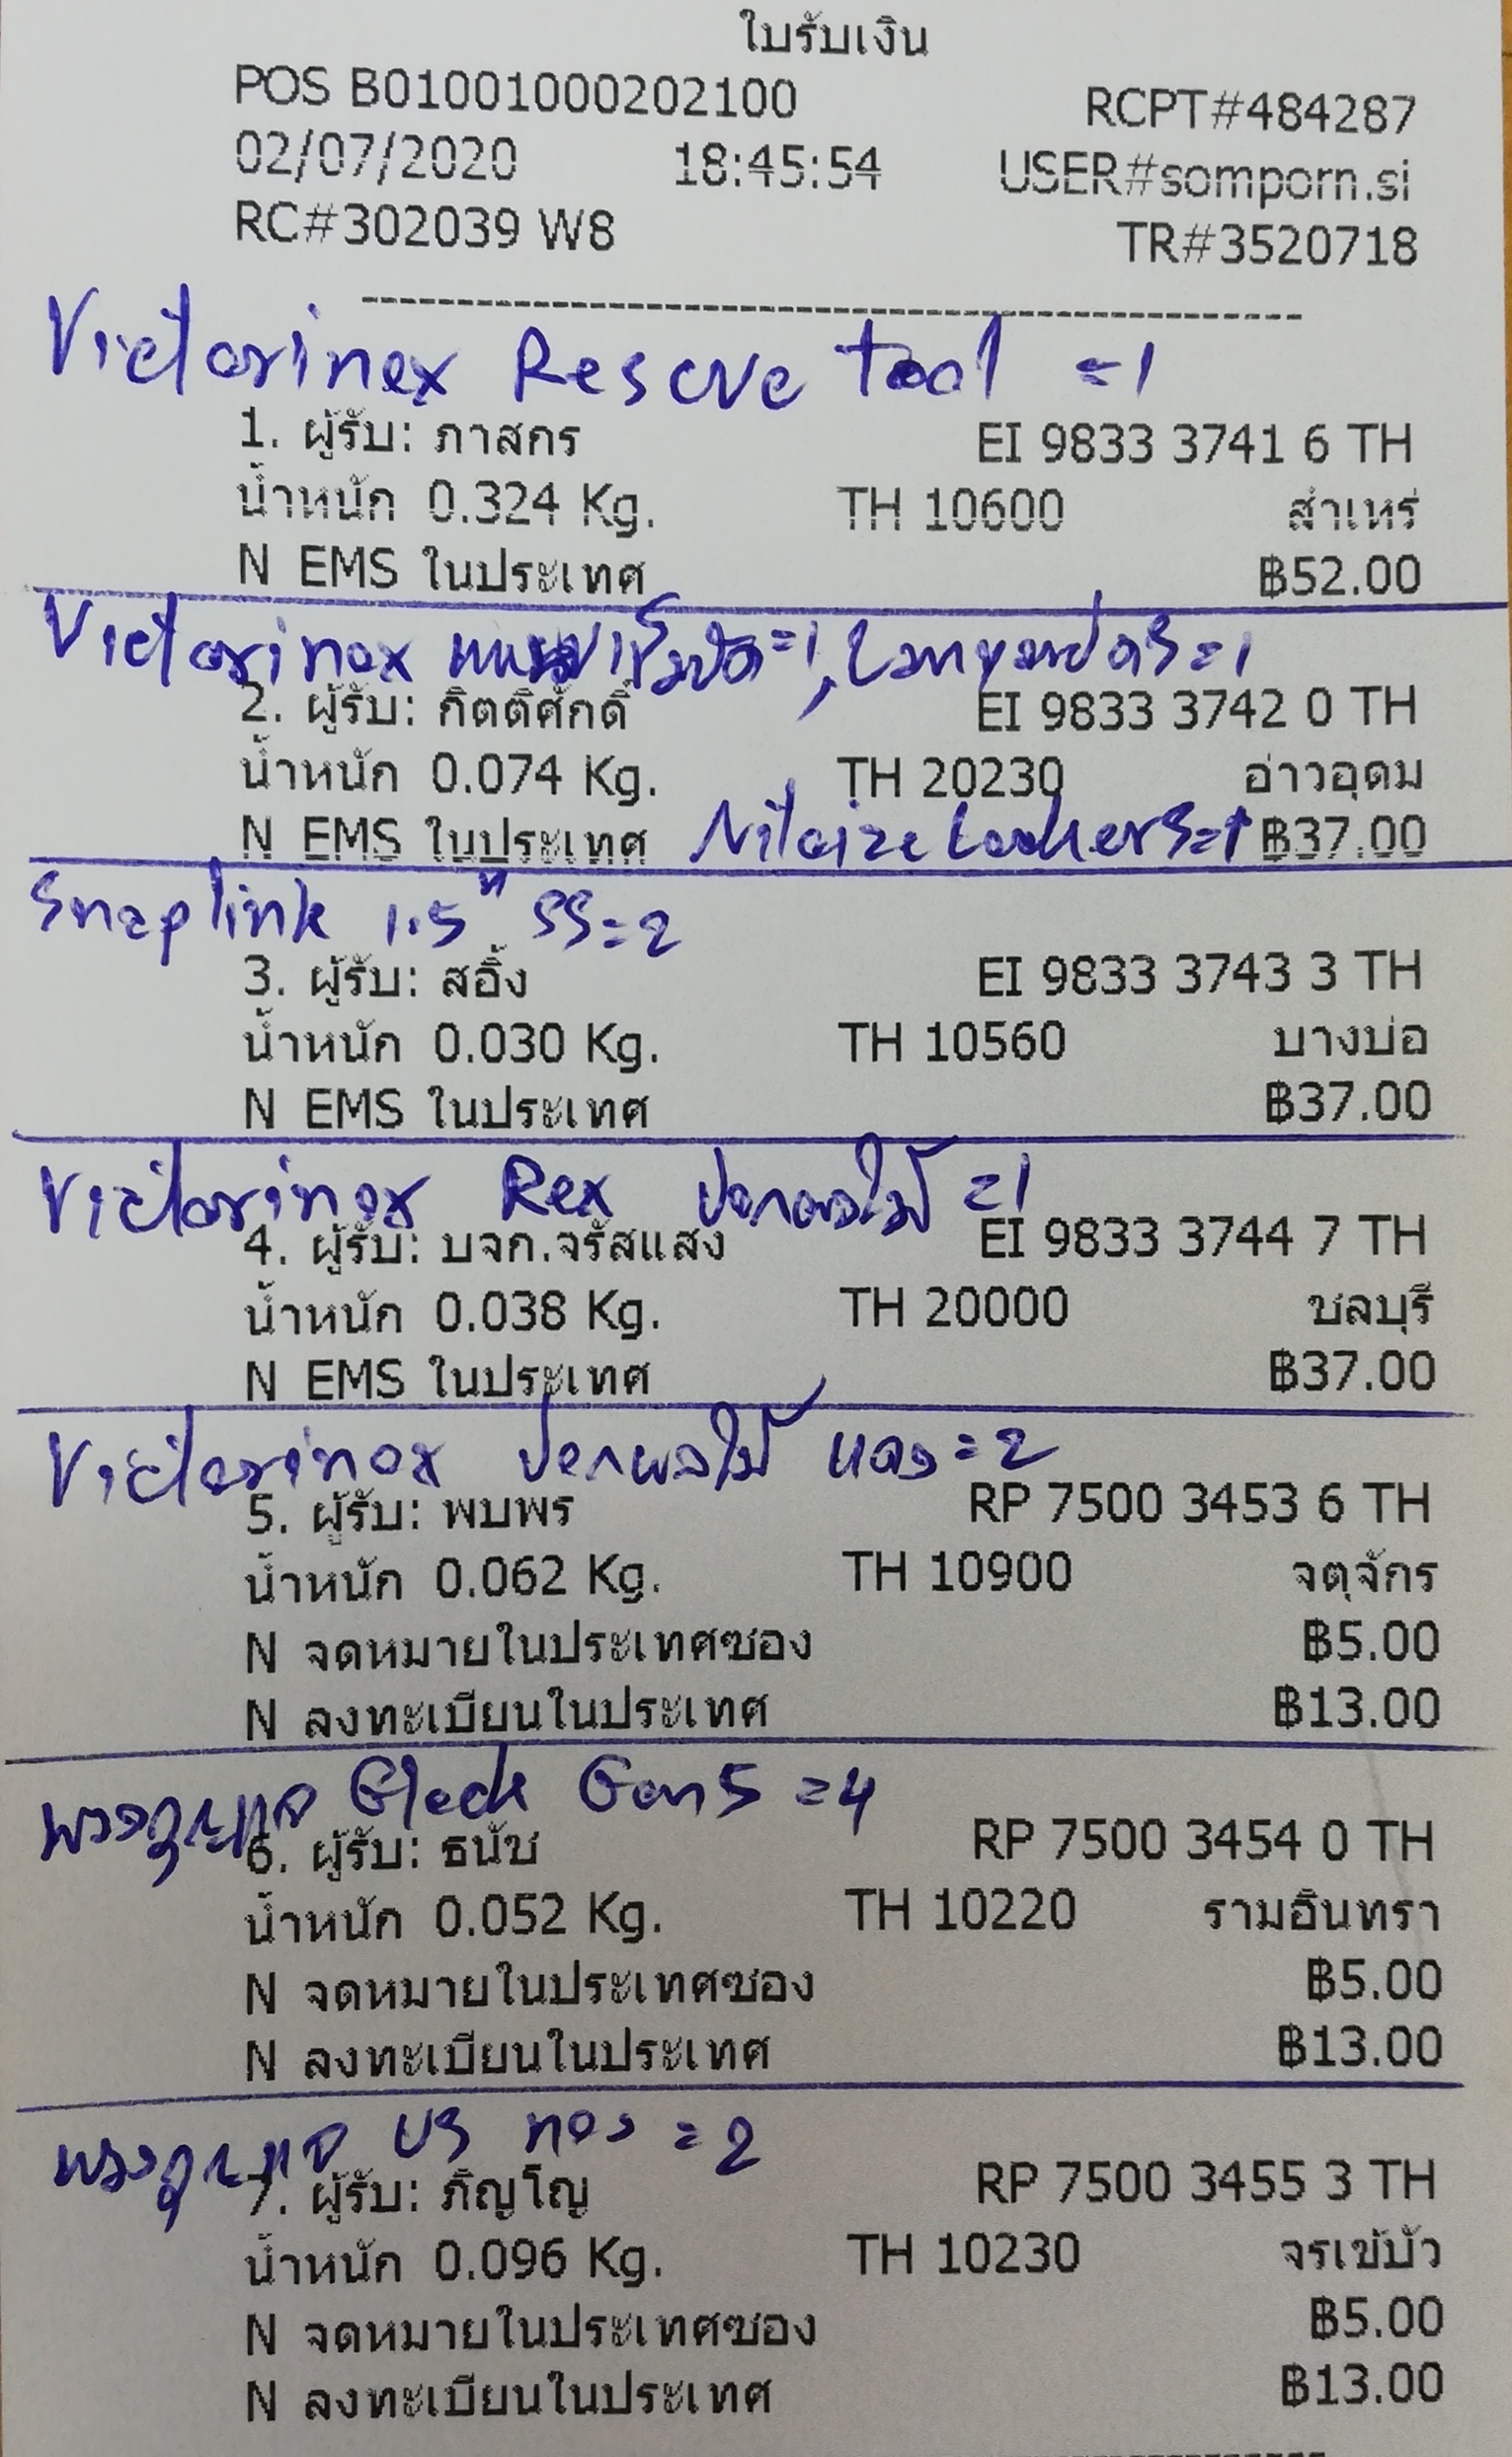 ใบรับเงิน
POS B01001000202100 RCPT#484287
02/07/2020 18:45:54 USER#somporn.si
RC#302039 W8 TR#3520718
Victorinox Rescue tool =1
1. ผู้รับ: ภาสกร EI 9833 3741 6 TH
น้ำหนัก 0.324 Kg. TH 10600 สำเหร่
N EMS ในประเทศ ฿52.00
Victorinox =1,
2. ผู้รับ: กิตติศักดิ์ EI 9833 3742 0 TH
น้ำหนัก 0.074 Kg. TH 20230 อ่าวอุดม
N EMS ในประเทศ ฿37.00
Snaplink 1.5" SS=2
3. ผู้รับ: สอิ้ง EI 9833 3743 3 TH
น้ำหนัก 0.030 Kg. TH 10560 บางบ่อ
N EMS ในประเทศ ฿37.00
Victorinox Rex ปอกผลไม้ =1
4. ผู้รับ: บจก.จรัสแสง EI 9833 3744 7 TH
น้ำหนัก 0.038 Kg. TH 20000 ชลบุรี
N EMS ในประเทศ ฿37.00
Victorinox ปอกผลไม้ แดง=2
5. ผู้รับ: พบพร RP 7500 3453 6 TH
น้ำหนัก 0.062 Kg. TH 10900 จตุจักร
N จดหมายในประเทศซอง ฿5.00
N ลงทะเบียนในประเทศ ฿13.00
พวงกุญแจ Glock Gen5 =4
6. ผู้รับ: ธนัช RP 7500 3454 0 TH
น้ำหนัก 0.052 Kg. TH 10220 รามอินทรา
N จดหมายในประเทศซอง ฿5.00
N ลงทะเบียนในประเทศ ฿13.00
พวงกุญแจ US ทอง =2
7. ผู้รับ: ภิญโญ RP 7500 3455 3 TH
น้ำหนัก 0.096 Kg. TH 10230 จรเข้บัว
N จดหมายในประเทศซอง ฿5.00
N ลงทะเบียนในประเทศ ฿13.00